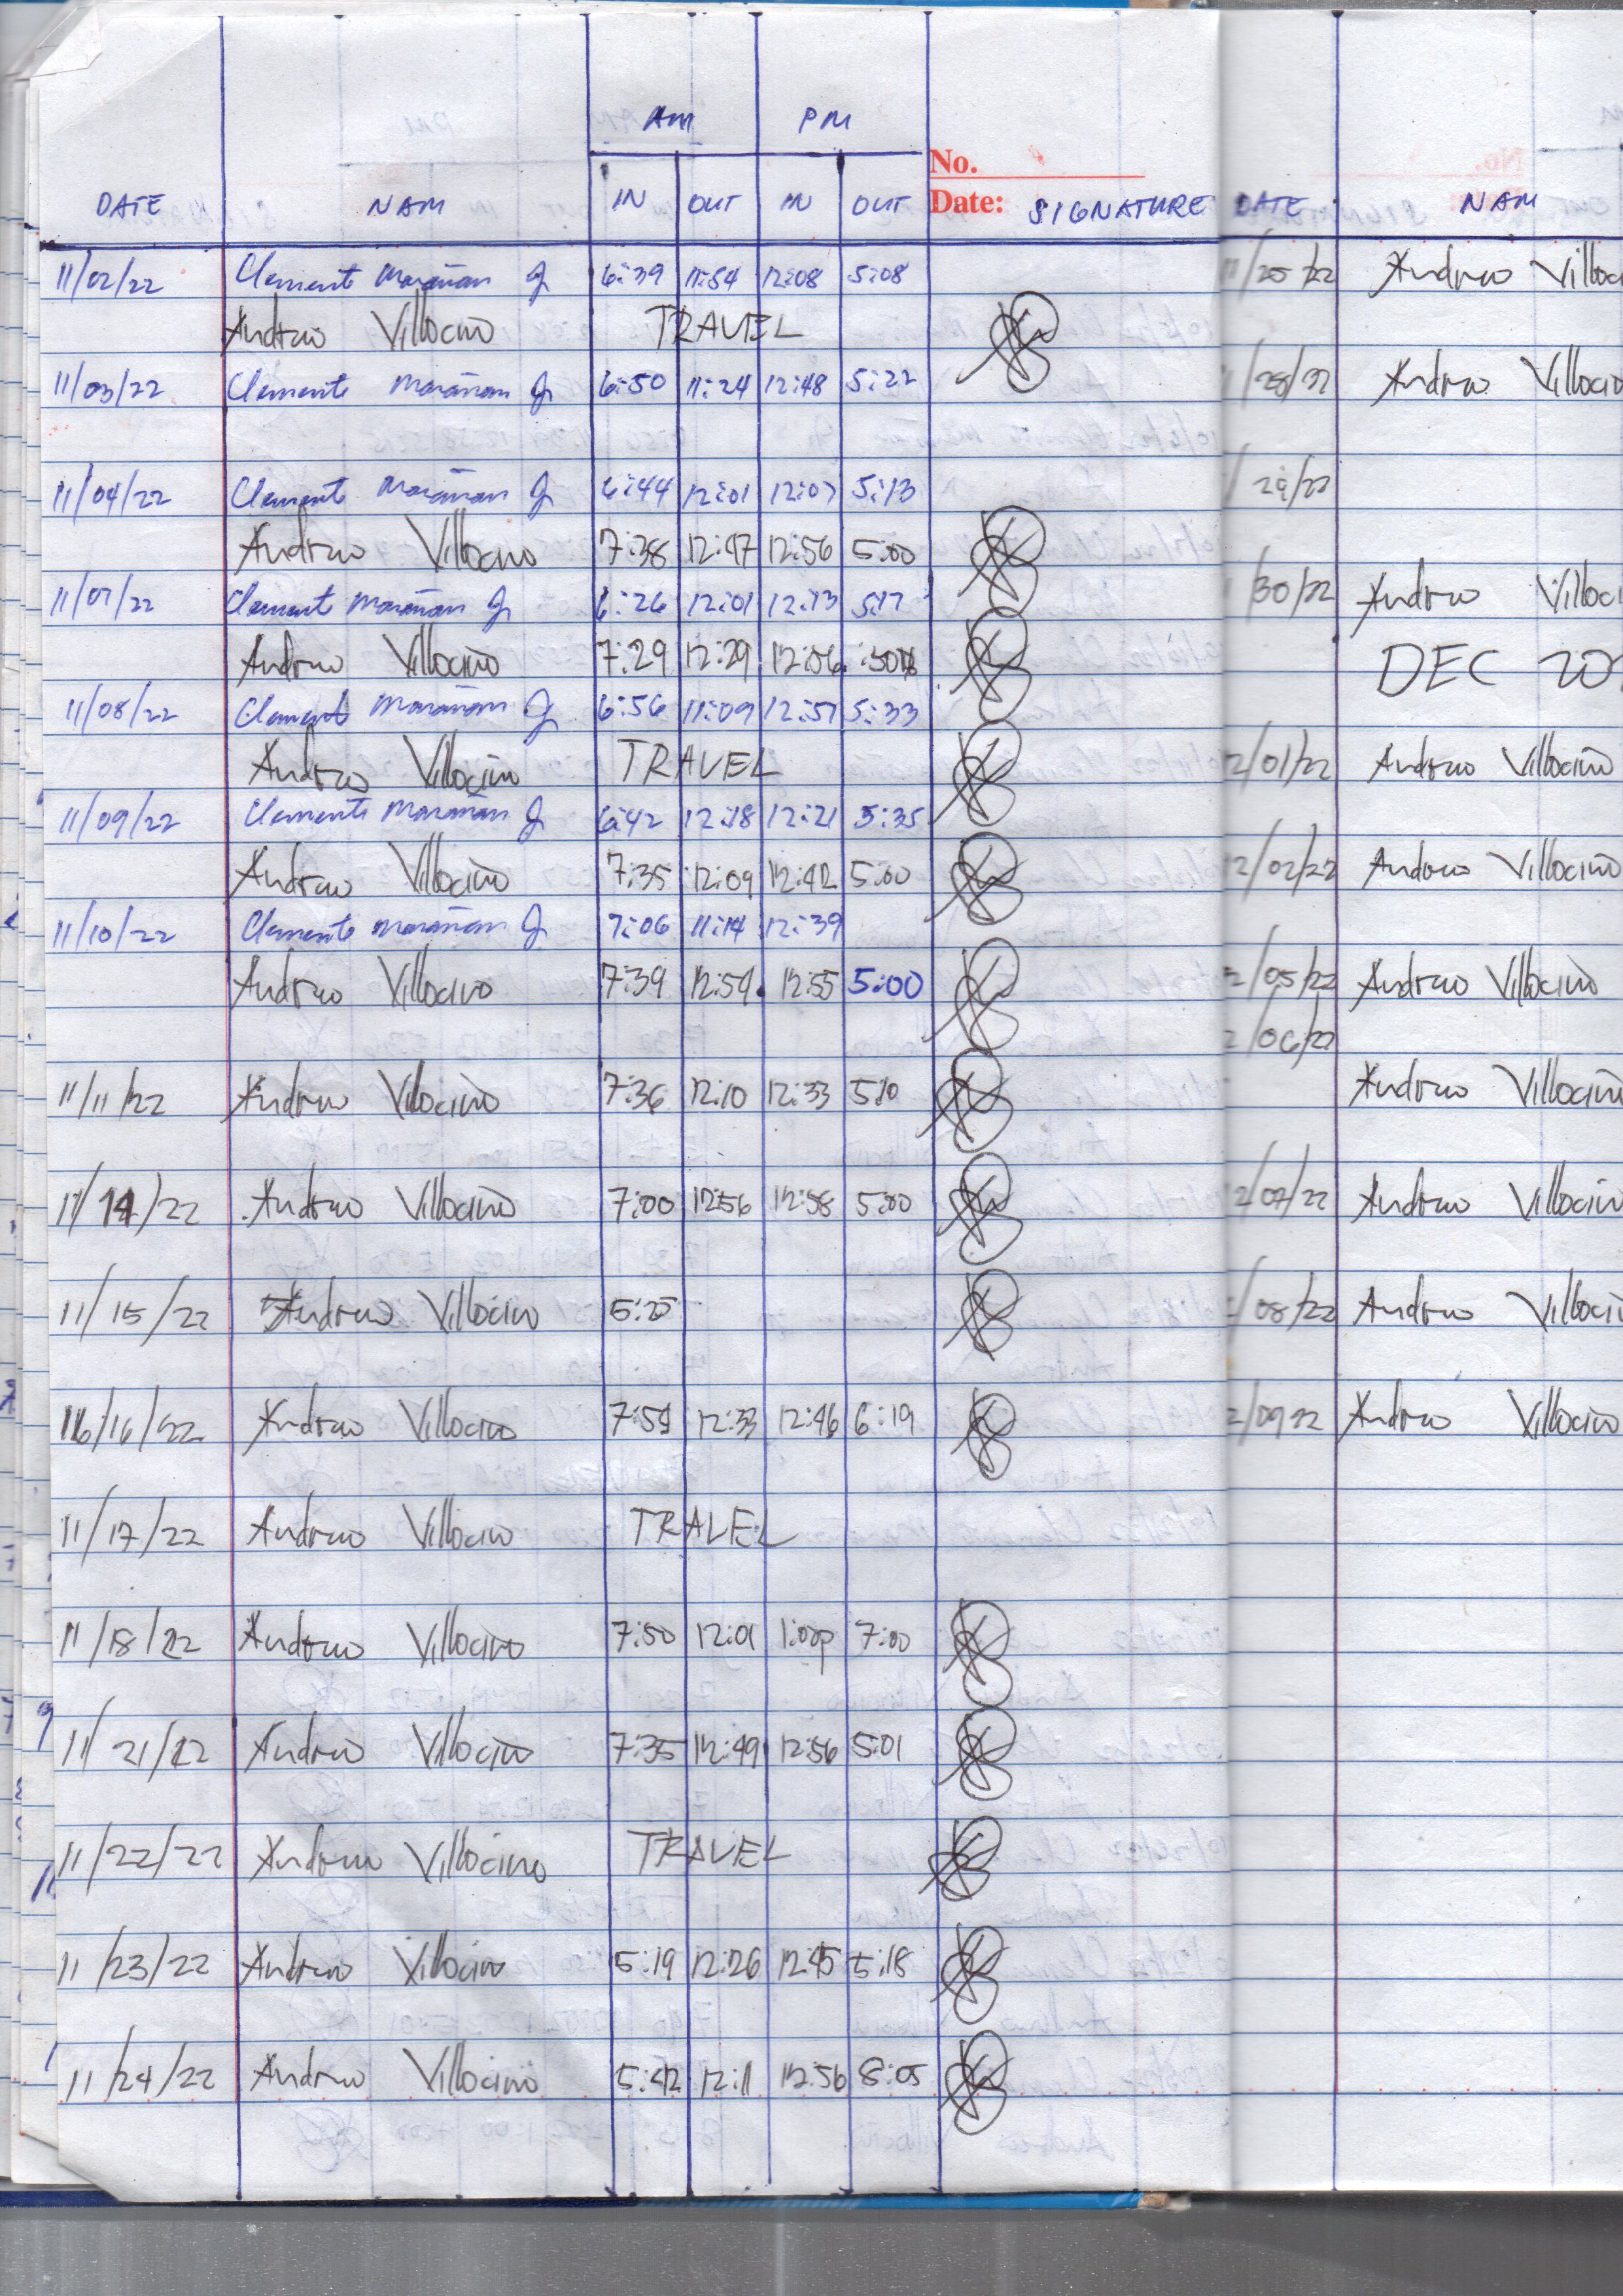 AM PM
No.
DATE NAM IN OUT IN OUT Date: SIGNATURE
11/02/22 Clemente Marañan Jr 6:39 11:54 12:08 5:08
Andrew Villocino TRAVEL
11/03/22 Clemente Marañan Jr 6:50 11:24 12:48 5:22
11/04/22 Clemente Marañan Jr 6:44 12:01 12:07 5:13
Andrew Villocino 7:38 12:47 12:56 5:00
11/07/22 Clemente Marañan Jr 6:26 12:01 12:13 5:17
Andrew Villocino 7:29 12:29 12:56
11/08/22 Clemente Marañan Jr 6:56 11:09 12:57 5:33
Andrew Villocino TRAVEL
11/09/22 Clemente Marañan Jr 6:42 12:18 12:21 5:35
Andrew Villocino 7:35 12:09 12:42 5:00
11/10/22 Clemente Marañan Jr 7:06 11:14 12:39
Andrew Villocino 7:39 12:54 12:55 5:00
11/11/22 Andrew Villocino 7:36 12:10 12:33 5:10
11/14/22 Andrew Villocino 7:00 12:56 12:58 5:00
11/15/22 Andrew Villocino 5:25
16/16/22 Andrew Villocino 7:54 12:33 12:46 6:19
11/17/22 Andrew Villocino TRAVEL
11/18/22 Andrew Villocino 7:50 12:01 1:00p 7:00
11/21/22 Andrew Villocino 7:35 12:49 12:56 5:01
11/22/22 Andrew Villocino TRAVEL
11/23/22 Andrew Villocino 5:19 12:26 12:45 5:18
11/24/22 Andrew Villocino 5:42 12:11 12:56 8:05
DATE NAM
1/25/22 Andrew Villoc
1/28/22 Andrew Villocin
/29/22
1/30/22 Andrew Villoci
DEC 20
2/01/22 Andrew Villocino
2/02/22 Andrew Villocino
2/05/22 Andrew Villocino
2/06/22
Andrew Villocin
2/07/22 Andrew Villocin
2/08/22 Andrew Villoci
2/09 22 Andrew Villocino